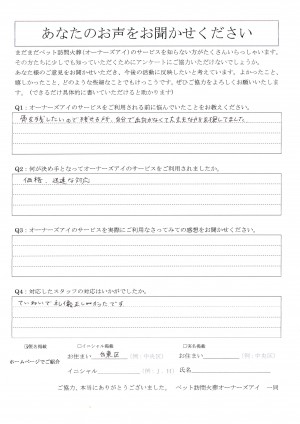 あなたのお声をお聞かせください
まだまだペット訪問火葬(オーナーズアイ)のサービスを知らない方がたくさんいらっしゃいます。
その方たちに少しでも知っていただくためにアンケートにご協力いただけないでしょうか。
あなた様のご意見をお聞かせいただき、今後の活動に反映したいと考えています。よかったこと、
嬉しかったこと、どのような些細なことでもけっこうです。ぜひご協力をよろしくお願いいたしま
す。(できるだけ具体的に書いていただけると助かります)
Q1：オーナーズアイのサービスをご利用される前に悩んでいたことをお教えください。
Q2：何が決め手となってオーナーズアイのサービスをご利用されましたか。
価格、迅速な対応
Q3：オーナーズアイのサービスを実際にご利用なさってみての感想をお聞かせください。
Q4：対応したスタッフの対応はいかがでしたか。
ていねいで礼儀正しかったです
匿名掲載 □イニシャル掲載 □実名掲載
ホームページでご紹介
お住まい 台東区 (例：中央区) お住まい (例：中央区)
イニシャル (例：J．H) 氏名
ご協力、本当にありがとうございました。 ペット訪問火葬オーナーズアイ 一同